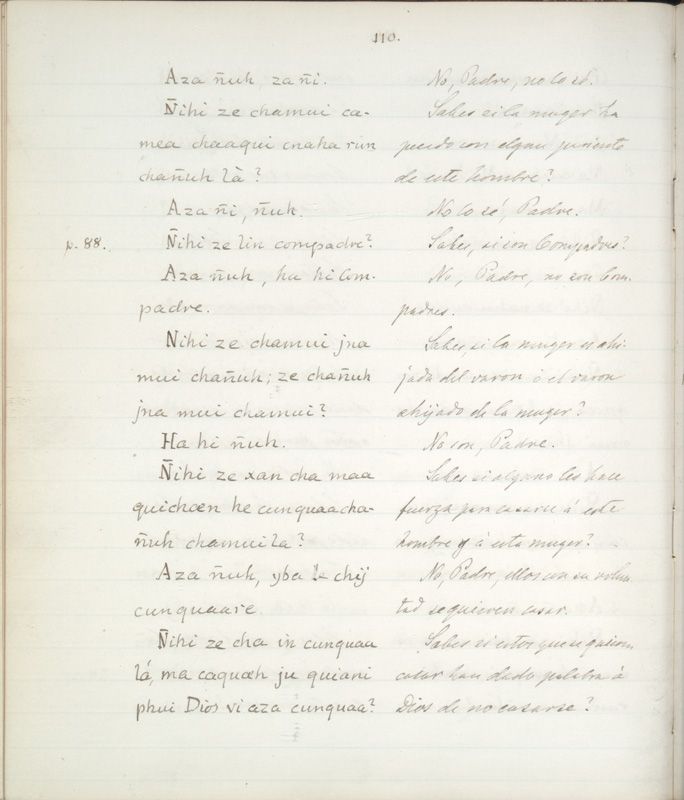 110.
Aza ñuh, za ñi.
Ñihi ze chamui ca-
mea chaaqui cnaha rún
chañuh là?
Aza ñi, ñuh.
p. 88.
Ñihi ze lin compadre?
Aza ñuh, ha hi com-
padre.
Nihi ze chamui jna
mui chañuh; ze chañuh
jna mui chamui?
Ha hi ñuh.
Ñihi ze xan cha maa
quichœn he cunquaacha-
ñuh chamuila?
Aza ñuh, yba chij
cunquaare.
Ñihi ze cha in cunquaa
lá, ma caquœh ju quiani
phui Dios vi aza cunquaa?
No, Padre, no lo sé.
Sabes si la muger ha
pecado con algun pariente
de este hombre?
No lo sé, Padre.
Sabes, si son Compadres?
No, Padre, no son Com-
padres.
Sabes, si la muger es ahi-
jada del varon ó el varon
ahijado de la muger?
No son, Padre.
Sabes si alguno les hace
fuerza para casarse á este
hombre y á esta muger?
No, Padre, ellos con su volun
tad se quieren casar.
Sabes si estos que se quieren
casar han dado palabra á
Dios de no casarse?